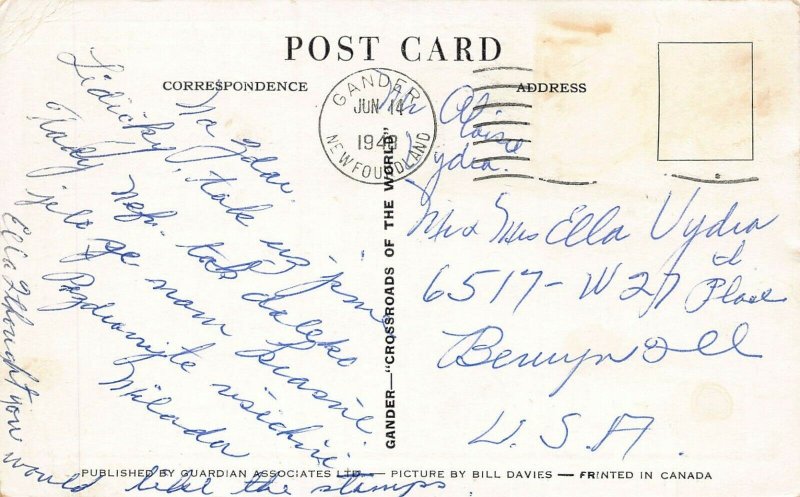 POST CARD
CORRESPONDENCE
ADDRESS
GANDER
JUN 14
1949
NEWFOUNDLAND
GANDER—"CROSSROADS OF THE WORLD"
Na zdar
Lidičky, tak už jsme
tak daleko
nam krasně
Pozdravujte všichni
Milada
Ella I thought you
would like the stamps.
Vydra.
Mr & Mrs Ella Vydra
6517-W 27 Place
Berwyn Ill
U.S.A.
PUBLISHED BY GUARDIAN ASSOCIATES LTD.— PICTURE BY BILL DAVIES — PRINTED IN CANADA